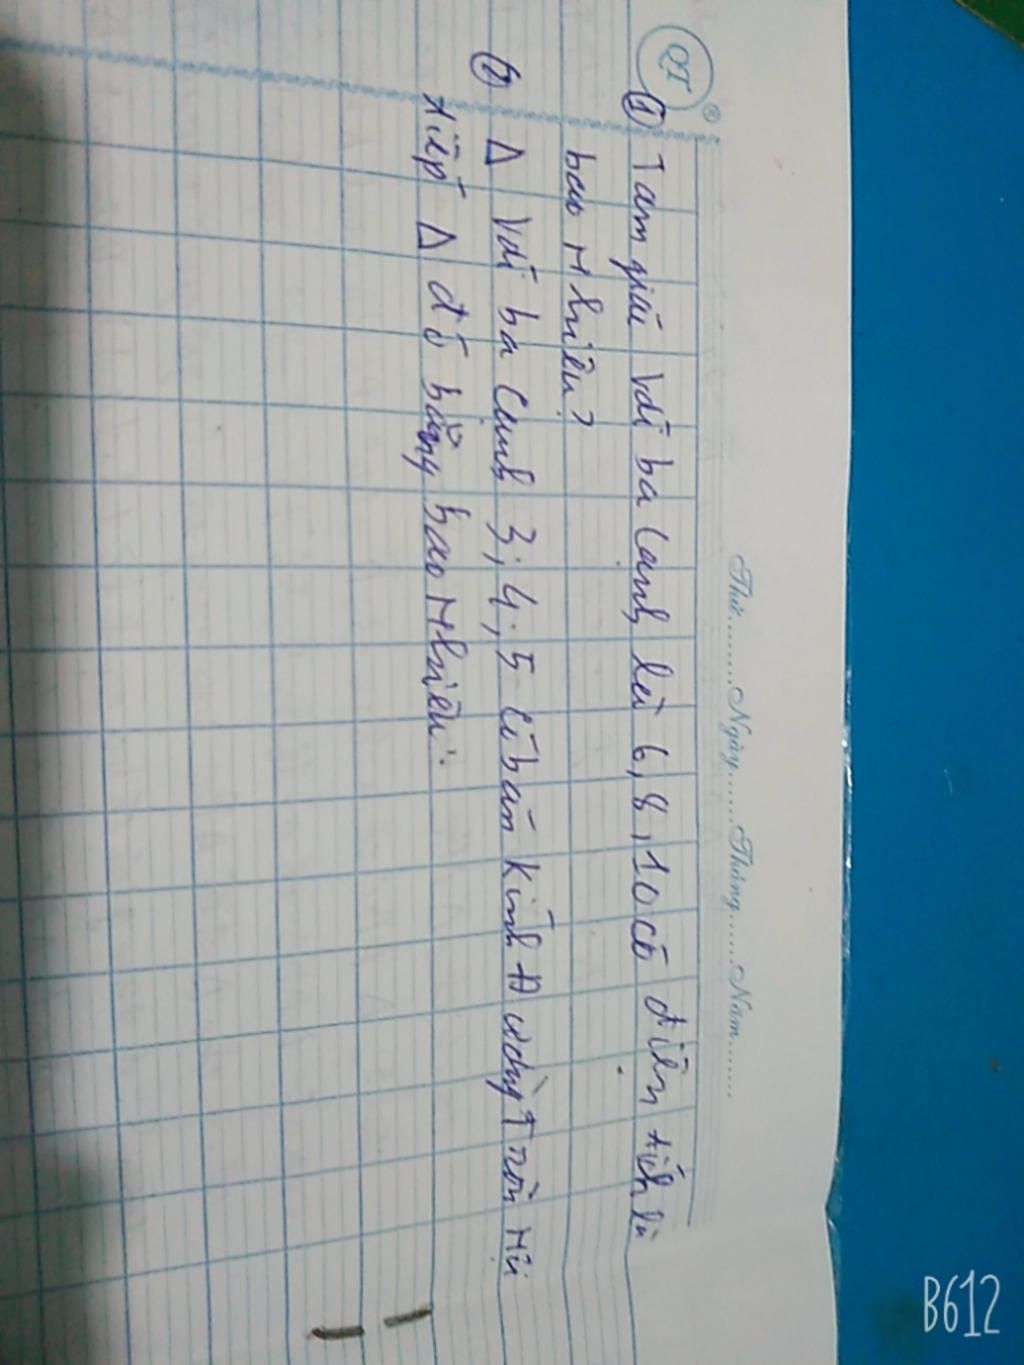 QT
®
Thứ.........Ngày.......Tháng.......Năm........
① Tam giác với ba cạnh là 6, 8, 10 có diện tích là
bao nhiêu?
② Δ với ba cạnh 3; 4; 5 có bán kính đường tròn nội
tiếp Δ đó bằng bao nhiêu:
B612